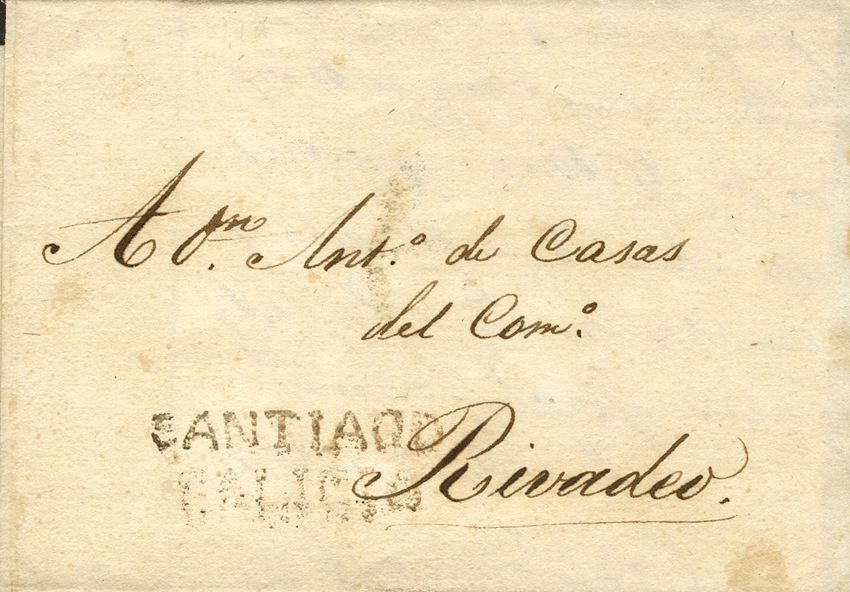 A Dn. Ant.º de Casas
del Com.º
SANTIAGO
GALICIA
Rivadeo.